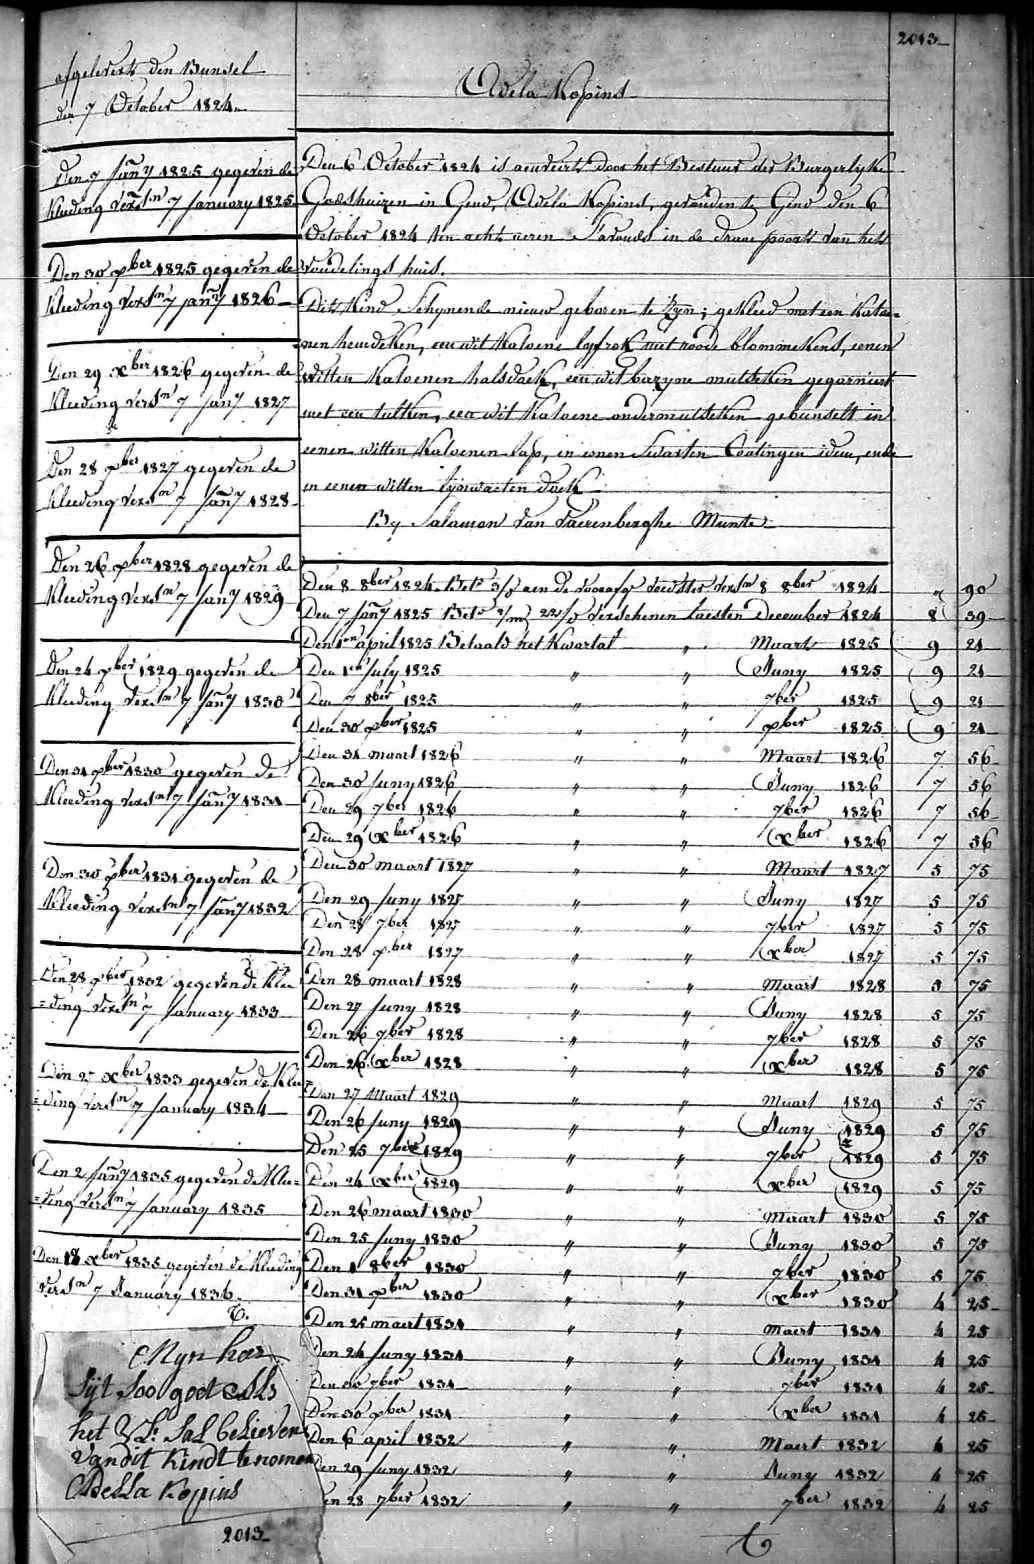 2013
afgelevert den Bunsel
den 7 October 1824
Adela Kopins
Den 7 Jany 1825 gegeven de
Kleeding verstn 7 January 1825
Den 30 xber 1825 gegeven de
Kleeding verstn 7 jany 1826
Den 29 xber 1826 gegeven de
Kleeding verstn 7 jany 1827
Den 28 xber 1827 gegeven de
Kleeding verstn 7 Jany 1828
Den 26 xber 1828 gegeven de
Kleeding verstn 7 Jany 1829
Den 24 xber 1829 gegeven de
Kleeding verstn 7 Jany 1830
Den 31 xber 1830 gegeven de
Kleeding verstn 7 Jany 1831
Den 30 xber 1831 gegeven de
Kleeding verstn 7 Jany 1832
Den 28 xber 1832 gegeven de Klee
=ding verstn 7 January 1833
Den 27 xber 1833 gegeven de Klee
=ding verstn 7 January 1834
Den 2 Jany 1835 gegeven de Klee=
=ding verstn 7 January 1835
Den 18 xber 1835 gegeven de Kleeding
verstn 7 January 1836
Mijn heer
Sijt soo goet Als
het U L. Sal believen
van dit Kindt te nomen
Adella Kopins
2013
Den 6 October 1824 is aenveert door het Bestuur der Burgerlyke
Godshuizen in Gend, Adela Kopins, gevonden te Gend den 6
October 1824 ten acht ueren S'avonds in de draae poort van het
vondelings huis.
Dit Kind Schynende nieuw geboren te Zyn; gekleed met een Katoe=
=nen hemdeken, een wit Katoene lyfrok met roode blommekens, eenen
witten Katoenen halsdoek, een wit bazyne mutseken gegarniert
met een tulken, een wit Katoene ondermutseken gebunselt in
eenen witten Katoenen lap, in eenen Swarten Coatingen idem, ende
in eenen witten lynwaeten doek
By Salamon Van Caevenberghe Munte
Den 8 8ber 1824 Bett 3/d aen de voorzorg voedster verstn 8 8ber 1824 " 90
Den 7 Jany 1825 Bett 2/m 22/d verschenen laesten December 1824 8 59
Den 1en april 1825 Betaald het Kwartal " Maart 1825 9 21
Den 1en July 1825 " " Juny 1825 9 21
Den 7 8ber 1825 " " 7ber 1825 9 21
Den 30 xber 1825 " " xber 1825 9 21
Den 31 maart 1826 " " Maart 1826 7 56
Den 30 Juny 1826 " " Juny 1826 7 56
Den 29 7ber 1826 " " 7ber 1826 7 56
Den 29 xber 1826 " " xber 1826 7 56
Den 30 maart 1827 " " Maart 1827 5 75
Den 29 Juny 1827 " " Juny 1827 5 75
Den 28 7ber 1827 " " 7ber 1827 5 75
Den 28 xber 1827 " " xber 1827 5 75
Den 28 maart 1828 " " Maart 1828 5 75
Den 27 Juny 1828 " " Juny 1828 5 75
Den 26 7ber 1828 " " 7ber 1828 5 75
Den 26 xber 1828 " " xber 1828 5 75
Den 27 Maart 1829 " " Maart 1829 5 75
Den 26 Juny 1829 " " Juny 1829 5 75
Den 25 7ber 1829 " " 7ber 1829 5 75
Den 24 xber 1829 " " xber 1829 5 75
Den 26 maart 1830 " " Maart 1830 5 75
Den 25 Juny 1830 " " Juny 1830 5 75
Den 1 8ber 1830 " " 7ber 1830 5 75
Den 31 xber 1830 " " xber 1830 4 25
Den 25 maert 1831 " " Maert 1831 4 25
Den 24 Juny 1831 " " Juny 1831 4 25
Den 30 7ber 1831 " " 7ber 1831 4 25
Den 30 xber 1831 " " xber 1831 4 25
Den 6 april 1832 " " Maert 1832 4 25
Den 29 Juny 1832 " " Juny 1832 4 25
en 28 7ber 1832 " " 7ber 1832 4 25